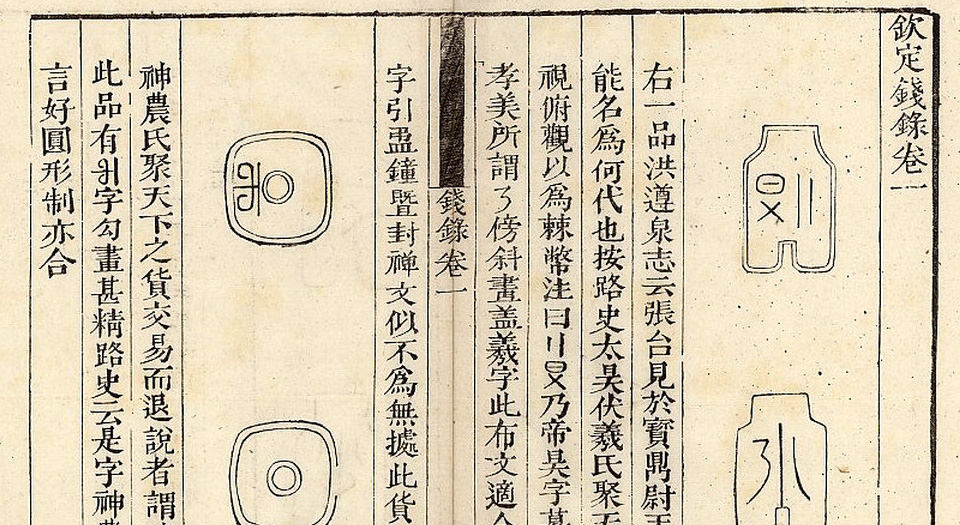 欽定錢錄卷一
右一品洪遵泉志云張台見於寶鼎尉王
能名爲何代也按路史太昊伏羲氏聚天
視俯觀以爲棘幣注曰乃帝昊字葛
孝美所謂了傍斜畫蓋羲字此布文適合
錢錄卷一
字引盄鐘曁封禪文似不爲無據此貨
神農氏聚天下之貨交易而退說者謂
此品有字勾畫甚精路史云是字神農
言好圓形制亦合